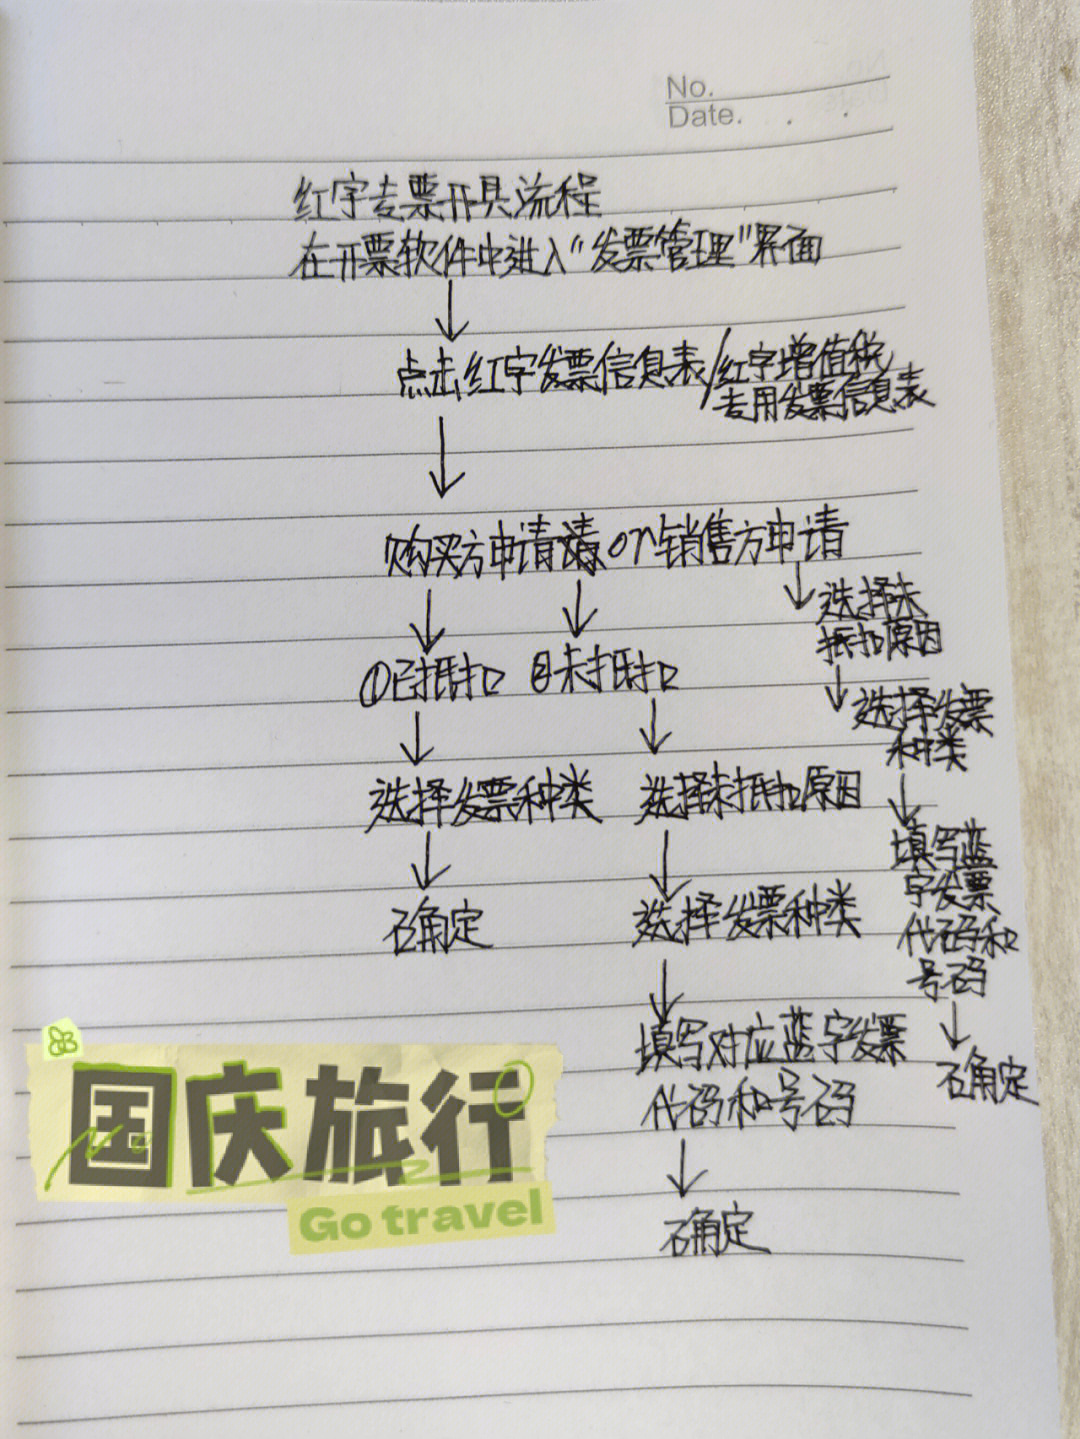 No.
Date.
红字专票开具流程
在开票软件中进入“发票管理”界面
点击红字发票信息表/红字增值税
专用发票信息表
购买方申请 or 销售方申请
①已抵扣 ②未抵扣
选择发票种类
确定
选择未抵扣原因
选择发票种类
填写对应蓝字发票
代码和号码
确定
选择未
抵扣原因
选择发票
种类
填写蓝
字发票
代码和
号码
确定
国庆旅行
Go travel